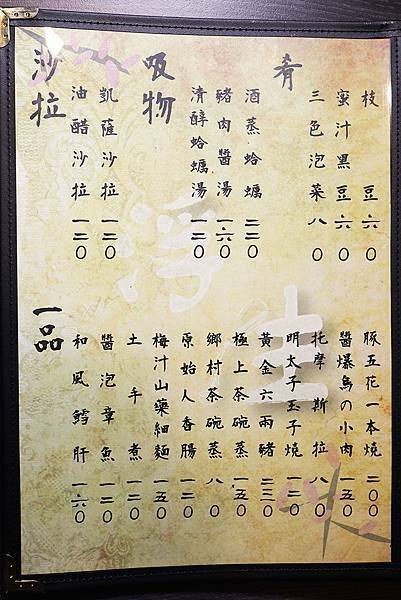 肴
枝豆 六〇
蜜汁黑豆 六〇
三色泡菜 八〇
吸物
酒蒸蛤蠣 二二〇
豬肉醬湯 一六〇
清醇蛤蠣湯 一二〇
沙拉
凱薩沙拉 一二〇
油醋沙拉 一二〇
一品
豚五花一本燒 二〇〇
醬爆鳥の小肉 一五〇
托摩斯拉 八〇
明太子玉子燒 一二〇
黃金六兩豬 二三〇
極上茶碗蒸 一五〇
鄉村茶碗蒸 八〇
原始人香腸 一二〇
梅汁山藥細麵 一五〇
土手煮 一二〇
醬泡章魚 一二〇
和風鱈肝 一六〇